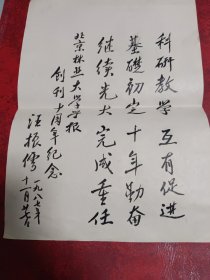 科研教学互有促进
基礎初定十年勤奋
继续光大完成重任
北京林业大学学报
创刊十周年纪念
汪振儒
一九八七年
十一月廿日